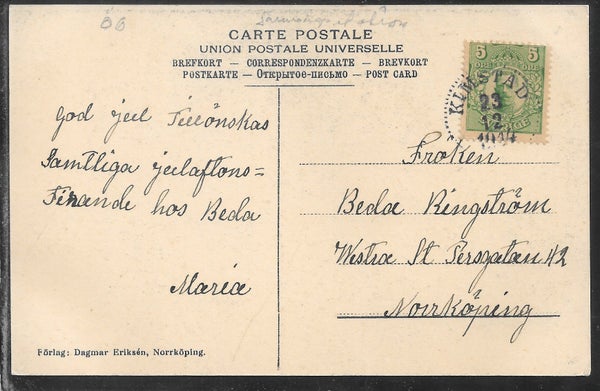 ÖG
CARTE POSTALE
UNION POSTALE UNIVERSELLE
BREFKORT — CORRESPONDENZKARTE — BREVKORT
POSTKARTE — Открытое-письмо — POST CARD
5 5
KIMSTAD
23
12
1914
God jul Tillönskas
Samtliga julaftons=
Firande hos Beda
Maria
Fröken
Beda Ringström
Westra St Persgatan 42
Norrköping
Förlag: Dagmar Eriksén, Norrköping.